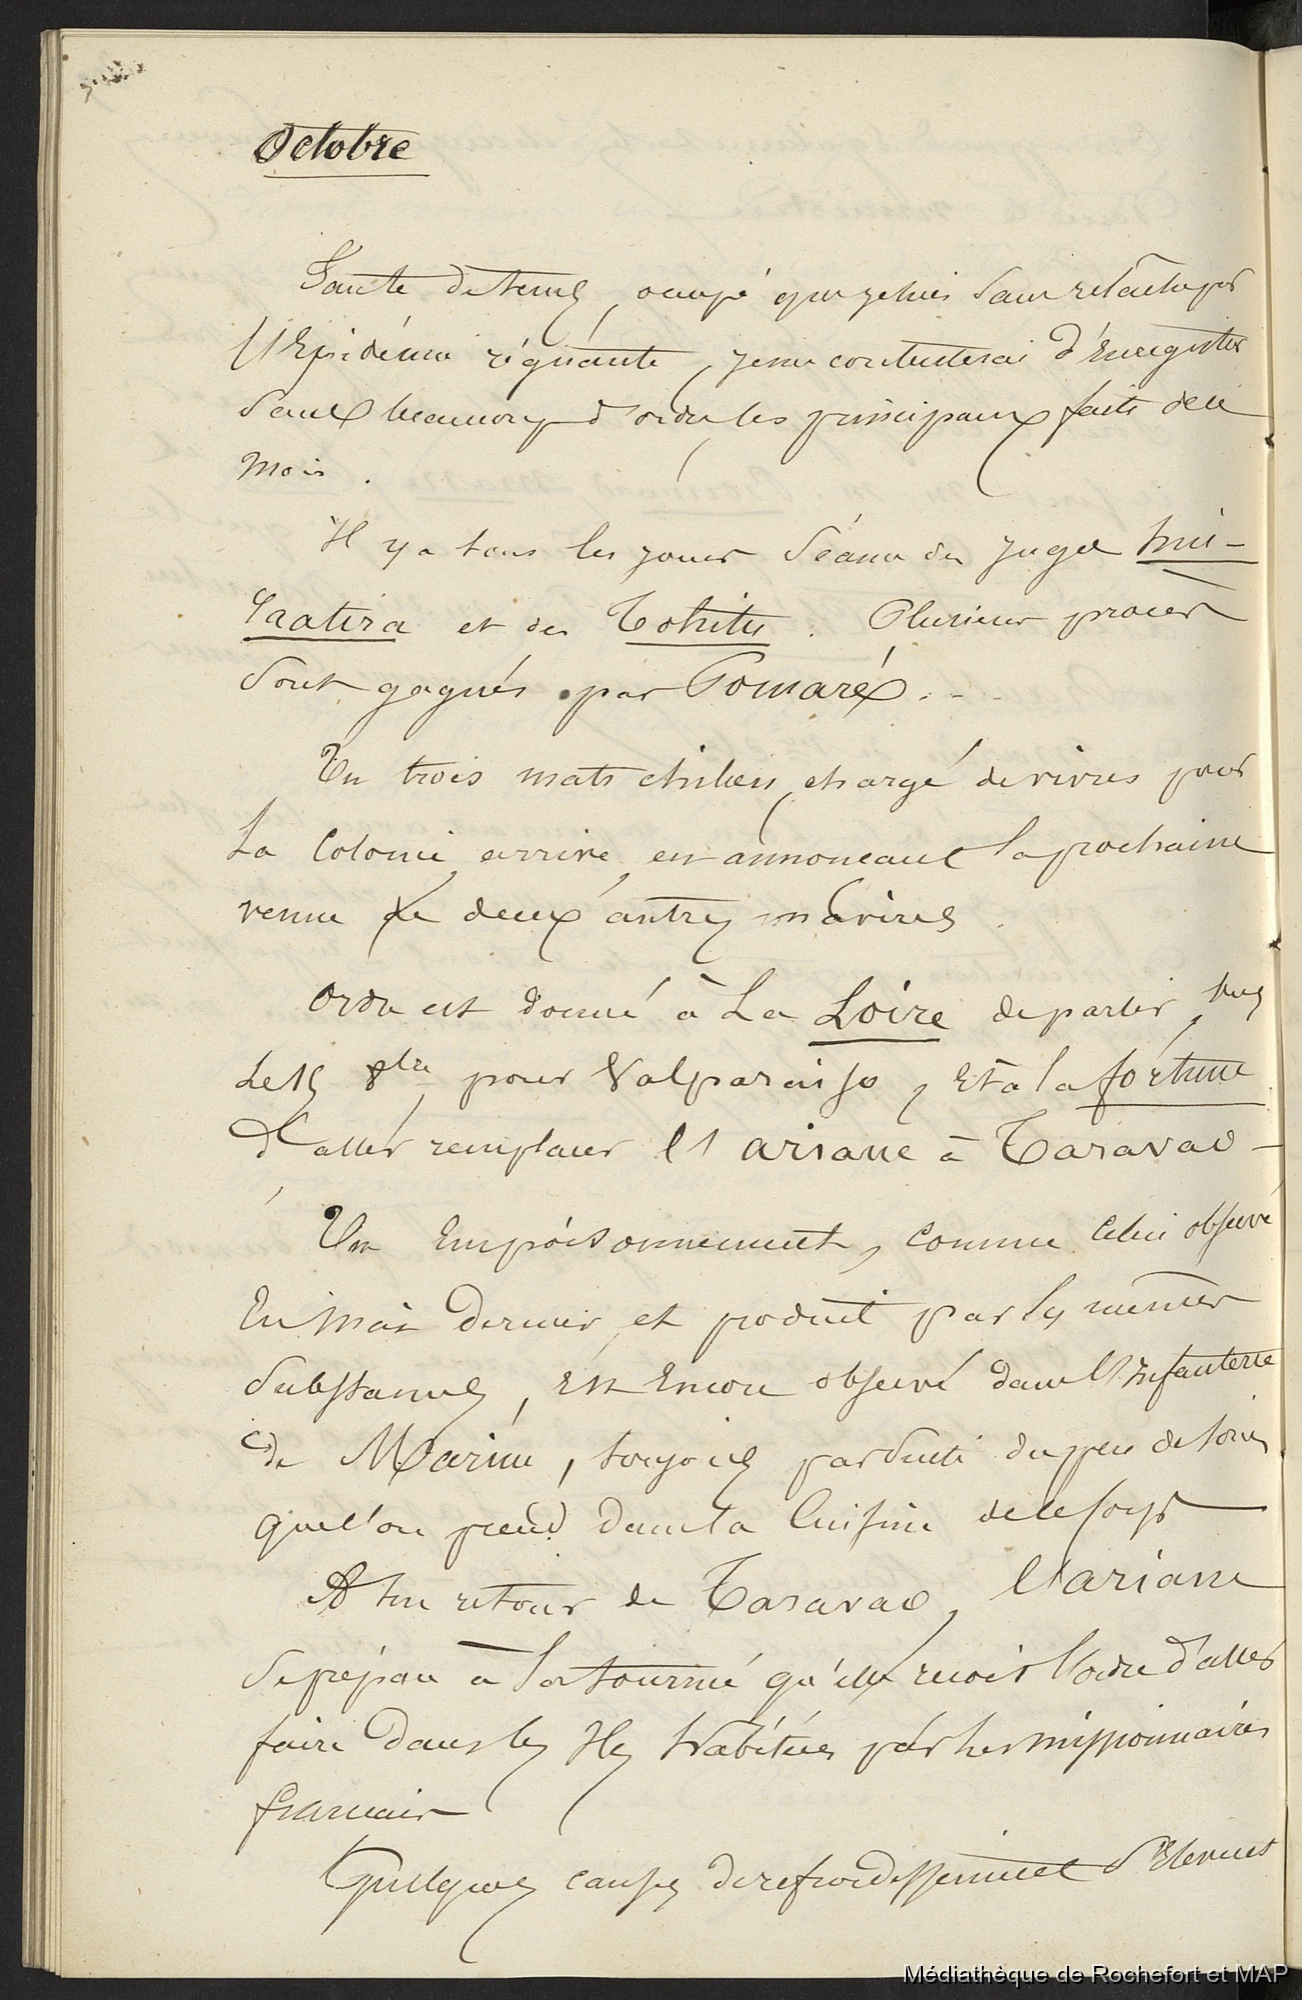 Octobre
Faute de temps, occupé que je suis sans relâche par
l'Epidémie régnante, je me contenterai d'Enregistrer
sans beaucoup d'ordre les principaux faits de ce
mois.
Il y a tous les jours séance des juges hui-
raatira et des Tohitu. Plusieurs procès
sont gagnés par Pomaré. - -
Un trois mats chilien, chargé de vivres pour
La Colonie, arrive, en annonçant la prochaine
venue de deux autres navires.
Ordre est donné à La Loire de partir vers
Le 15 8bre pour Valparaiso, et à la fortune
d'aller remplacer l'ariane à Taravao -
Un Empoisonnement, comme celui observé
En Mai dernier, et produit par les mêmes
substances, est Encore observé dans l'Infanterie
de Marine, toujours par suite du peu de soins
que l'on prend dans la Cuisine de ce Corps
A son retour de Taravao, l'ariane
se prépare à la tournée qu'elle reçoit l'ordre d'aller
faire dans les Iles habitées par les missionnaires
français
Quelques causes de refroidissement s'Elevent
Médiathèque de Rochefort et MAP